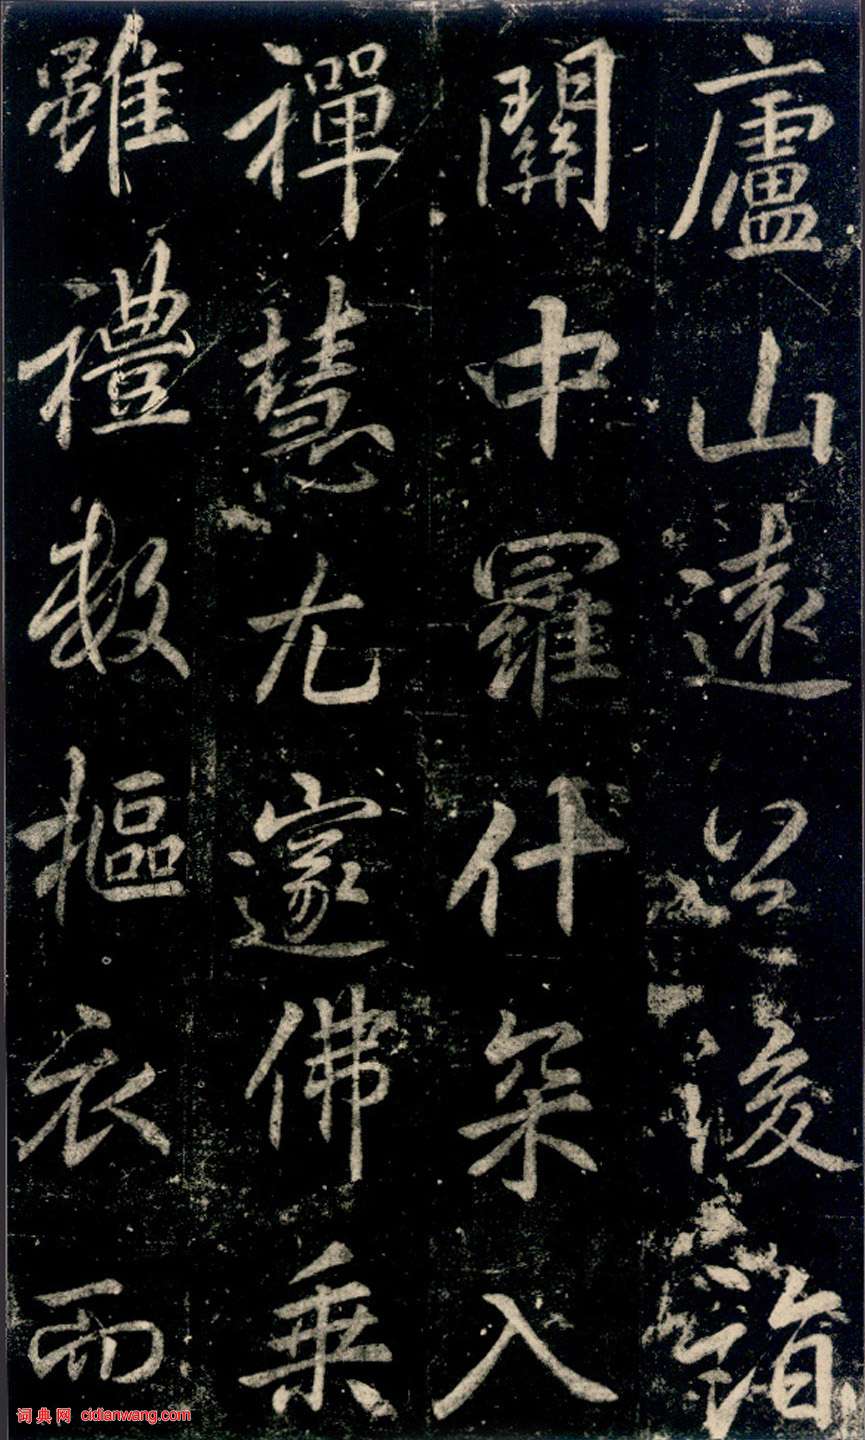 廬山遠公後詣
關中羅什罙入
禪慧尤邃佛乘
雖禮數摳衣而
词典网 cidianwang.com